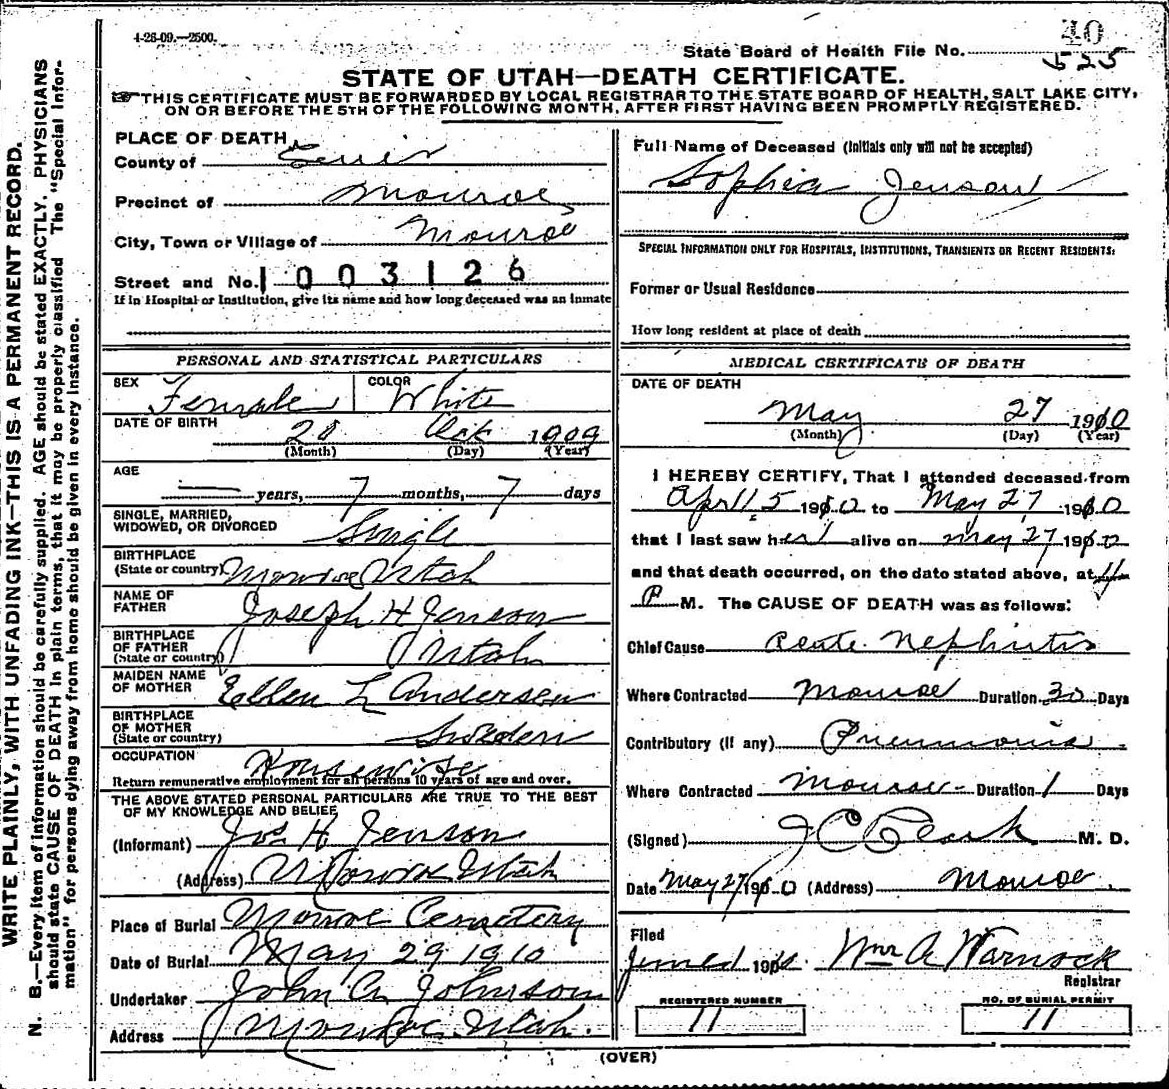 4-26-09.—2500.
40
State Board of Health File No. 525
STATE OF UTAH—DEATH CERTIFICATE.
THIS CERTIFICATE MUST BE FORWARDED BY LOCAL REGISTRAR TO THE STATE BOARD OF HEALTH, SALT LAKE CITY,
ON OR BEFORE THE 5TH OF THE FOLLOWING MONTH, AFTER FIRST HAVING BEEN PROMPTLY REGISTERED.
WRITE PLAINLY, WITH UNFADING INK—THIS IS A PERMANENT RECORD.
N. B.—Every item of information should be carefully supplied. AGE should be stated EXACTLY. PHYSICIANS
should state CAUSE OF DEATH in plain terms, that it may be properly classified. The "Special Infor-
mation" for persons dying away from home should be given in every instance.
PLACE OF DEATH
County of Sevier
Precinct of Monroe
City, Town or Village of Monroe
Street and No. 1003126
If in Hospital or Institution, give its name and how long deceased was an inmate
PERSONAL AND STATISTICAL PARTICULARS
SEX Female COLOR White
DATE OF BIRTH
20 Oct 1909
(Month) (Day) (Year)
AGE
— years, 7 months, 7 days
SINGLE, MARRIED,
WIDOWED, OR DIVORCED Single
BIRTHPLACE
(State or country) Monroe Utah
NAME OF
FATHER Joseph H Jenson
BIRTHPLACE
OF FATHER
(State or country) Utah
MAIDEN NAME
OF MOTHER Ellen L Andersen
BIRTHPLACE
OF MOTHER
(State or country) Sweden
OCCUPATION Housewife
Return remunerative employment for all persons 10 years of age and over.
THE ABOVE STATED PERSONAL PARTICULARS ARE TRUE TO THE BEST
OF MY KNOWLEDGE AND BELIEF
(Informant) Jos H Jenson
(Address) Monroe Utah
Place of Burial Monroe Cemetery
Date of Burial May 29 1910
Undertaker John A Johnson
Address Monroe Utah.
Full Name of Deceased (Initials only will not be accepted)
Sophia Jenson
SPECIAL INFORMATION ONLY FOR HOSPITALS, INSTITUTIONS, TRANSIENTS OR RECENT RESIDENTS:
Former or Usual Residence
How long resident at place of death
MEDICAL CERTIFICATE OF DEATH
DATE OF DEATH
May 27 1910
(Month) (Day) (Year)
I HEREBY CERTIFY, That I attended deceased from
April 5 1910 to May 27 1910
that I last saw her alive on May 27 1910
and that death occurred, on the date stated above, at 4
P M. The CAUSE OF DEATH was as follows:
Chief Cause Acute Nephritis
Where Contracted Monroe Duration 30 Days
Contributory (if any) Pneumonia
Where Contracted Monroe Duration 1 Days
(Signed) J C Clark M. D.
Date May 27 1910 (Address) Monroe.
Filed
June 1 1910 Wm A Warnock
Registrar
REGISTERED NUMBER
11
NO. OF BURIAL PERMIT
11
(OVER)